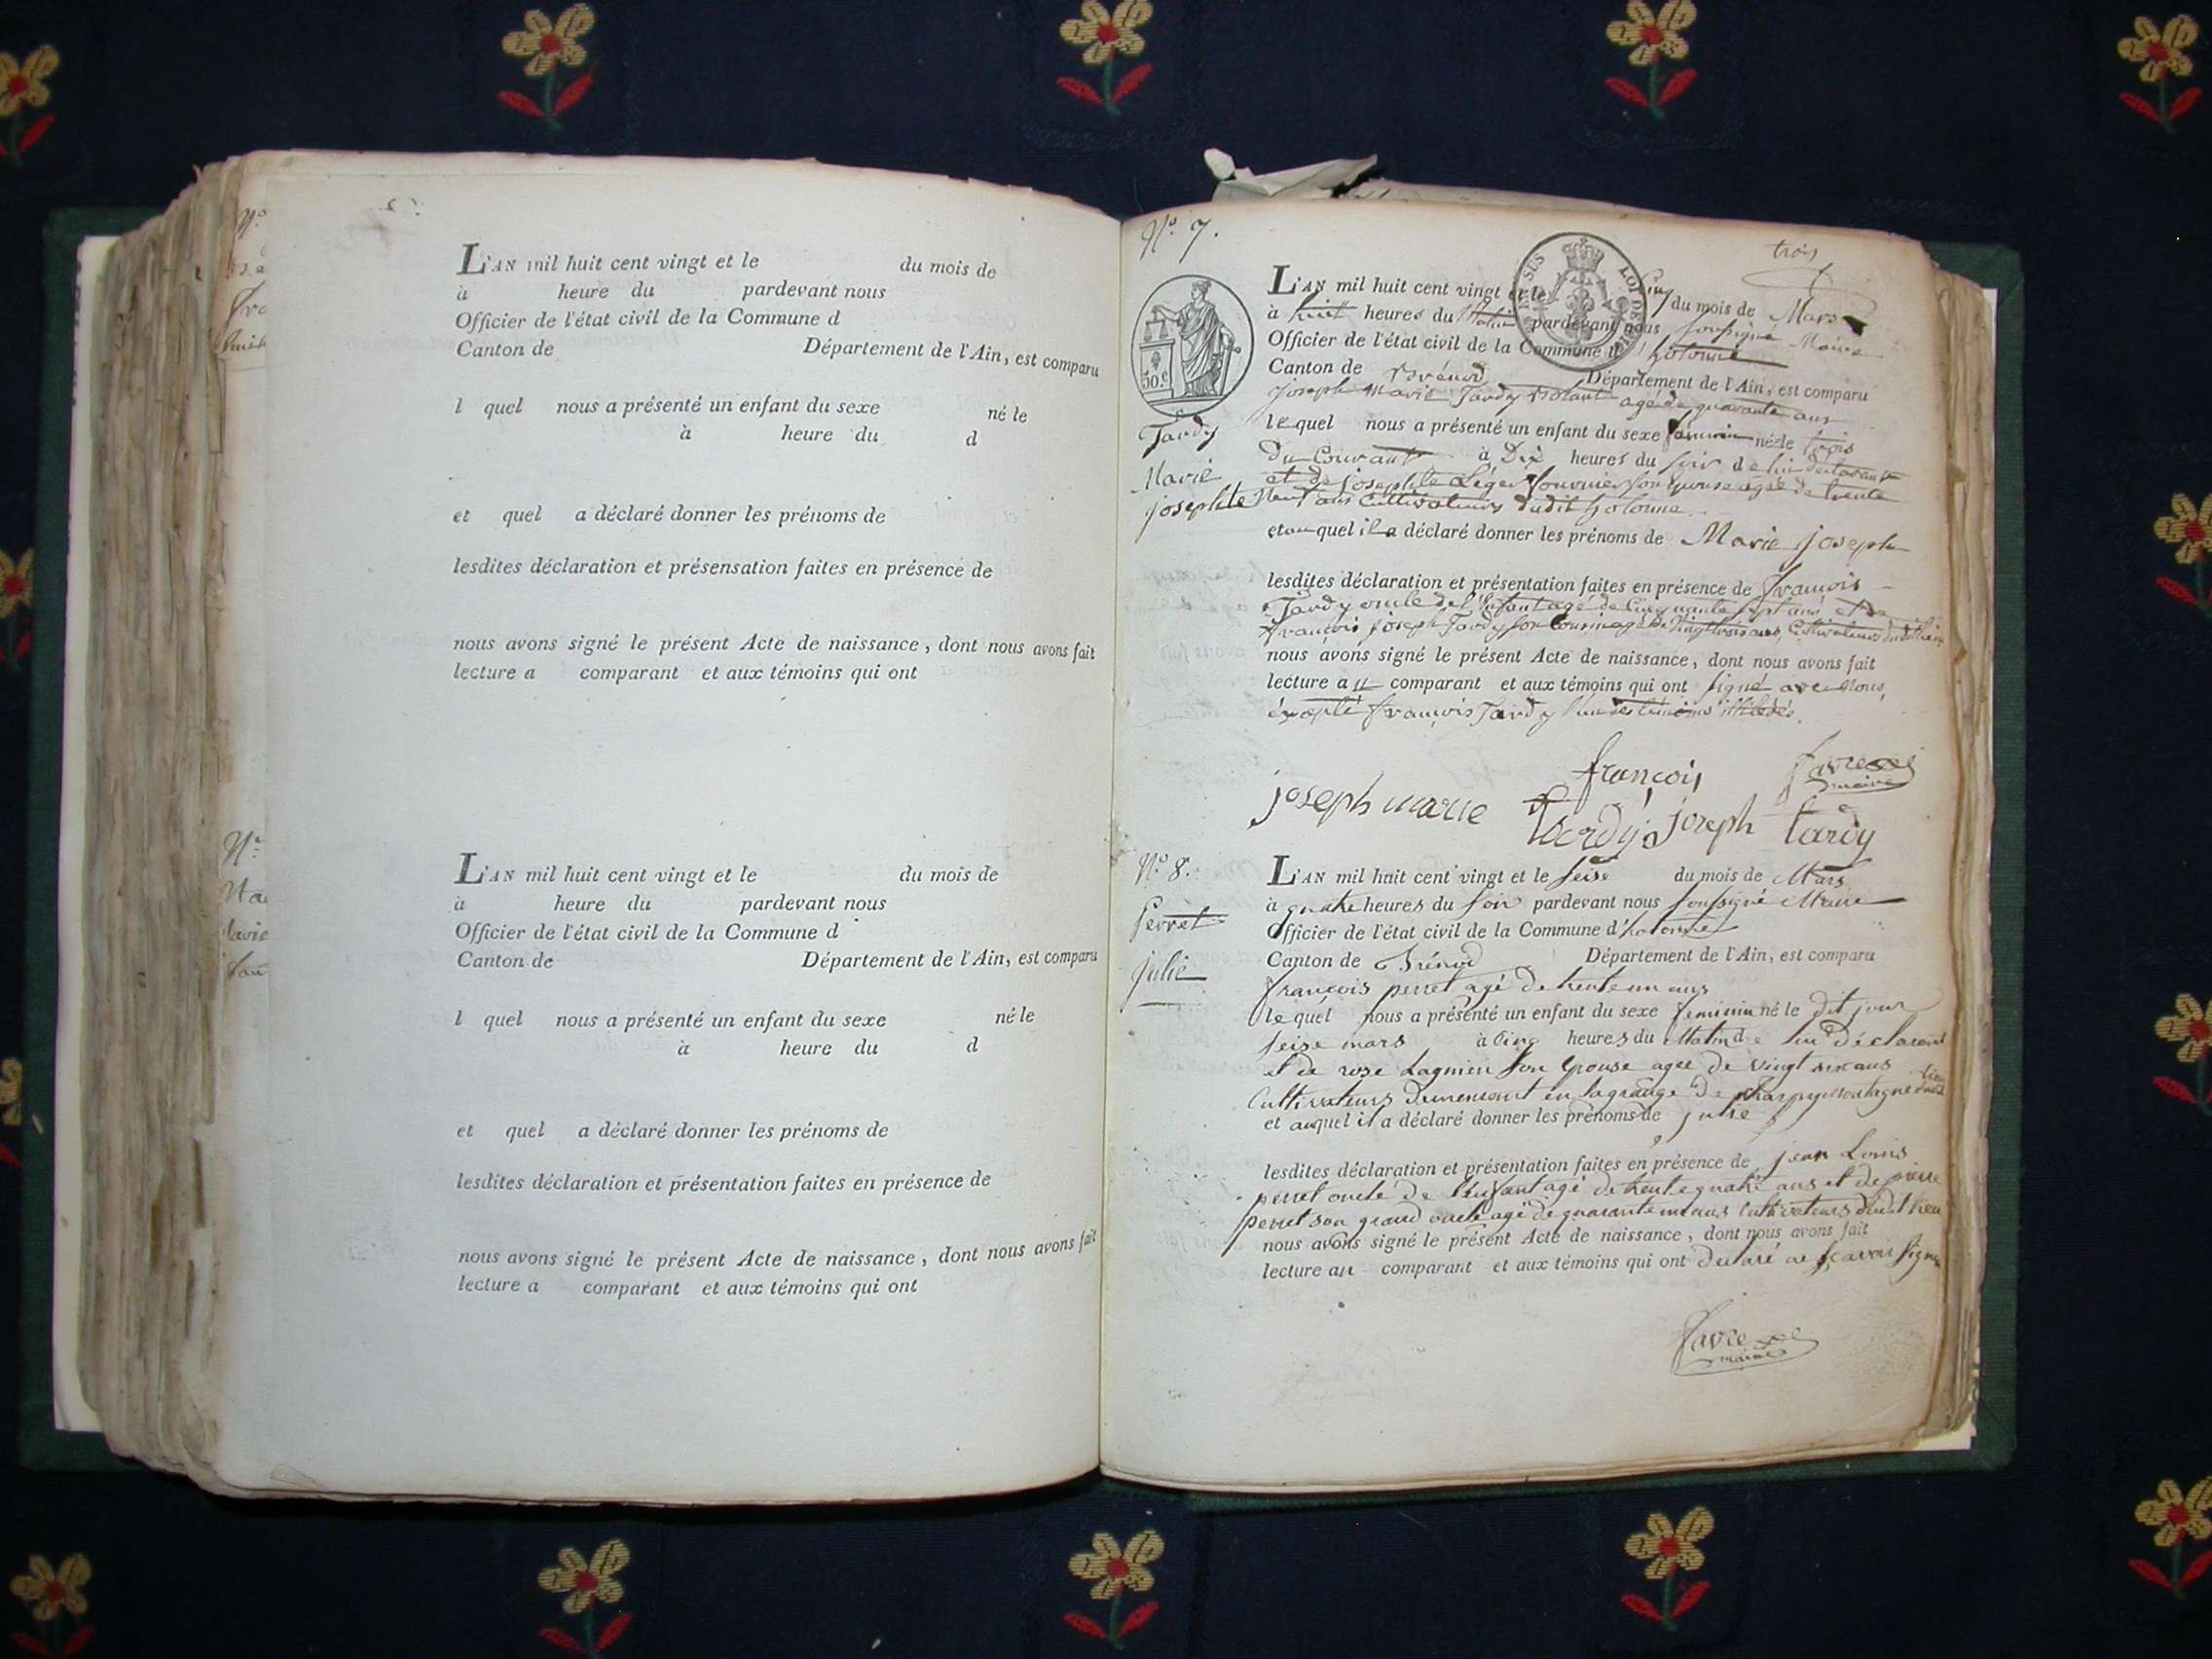 L'AN mil huit cent vingt et le du mois de
à heure du pardevant nous
Officier de l'état civil de la Commune d
Canton de Département de l'Ain, est comparu
l quel nous a présenté un enfant du sexe né le
à heure du d
et quel a déclaré donner les prénoms de
lesdites déclaration et présensation faites en présence de
nous avons signé le présent Acte de naissance, dont nous avons fait
lecture a comparant et aux témoins qui ont
L'AN mil huit cent vingt et le du mois de
à heure du pardevant nous
Officier de l'état civil de la Commune d
Canton de Département de l'Ain, est comparu
l quel nous a présenté un enfant du sexe né le
à heure du d
et quel a déclaré donner les prénoms de
lesdites déclaration et présentation faites en présence de
nous avons signé le présent Acte de naissance, dont nous avons fait
lecture a comparant et aux témoins qui ont
trois
N° 7.
50.c
Tardy
Marie
josephte
L'AN mil huit cent vingt et le Cinq du mois de Mars
à huit heures du Matin pardevant nous soussigné Maire
Officier de l'état civil de la Commune d' hotonne
Canton de Brénod Département de l'Ain, est comparu
joseph Marie Tardy agé de quarante ans
lequel nous a présenté un enfant du sexe féminin née le trois
Du Courant à Dix heures du soir de lui déclarant
et de josephte Léger son épouse agée de trente
Neuf ans Cultivateurs dudit hotonne
et auquel il a déclaré donner les prénoms de Marie joseph
lesdites déclaration et présentation faites en présence de françois
Tardy oncle de l'Enfant agé de Cinquante sept ans et de
françois joseph Tardy son Cousin agé de Vingt trois ans, Cultivateurs dudit lieu
nous avons signé le présent Acte de naissance, dont nous avons fait
lecture au comparant et aux témoins qui ont signé avec Nous,
éxcepté françois Tardy l'un des témoins
joseph marie tardy
françois joseph tardy
favre maire
N° 8.
Perret
julie
L'AN mil huit cent vingt et le seise du mois de Mars
à quatre heures du soir pardevant nous soussigné Maire
Officier de l'état civil de la Commune d'hotonne
Canton de Brénod Département de l'Ain, est comparu
françois perret agé de trente un ans
lequel nous a présenté un enfant du sexe feminin né le dit jour
seise mars à Cinq heures du Matin de lui déclarant
et de rose Lagnien son épouse agée de vingt six ans
Cultivateurs demeurant en la grange de
et auquel il a déclaré donner les prénoms de julie
lesdites déclaration et présentation faites en présence de jean Louis
perret oncle de l'enfant agé de trente quatre ans et de pierre
perret son grand oncle agé de quarante un ans Cultivateurs dudit lieu
nous avons signé le présent Acte de naissance, dont nous avons fait
lecture au comparant et aux témoins qui ont declaré ne sçavoir signer
favre
maire